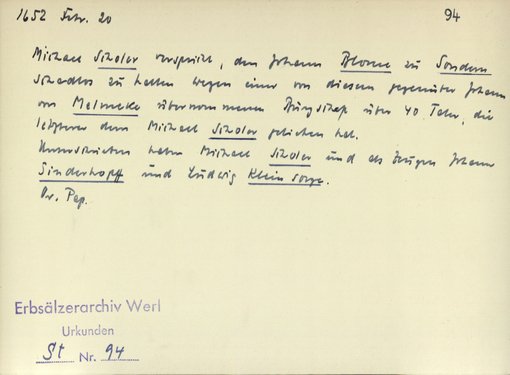 1652 Febr. 20
94
Michael Scholer verspricht, den Johann Blome zu Sondern
schadlos zu halten wegen einer von diesem gegenüber Johann
von Melmeke übernommenen Bürgschaft über 40 Taler, die
letzterer dem Michael Scholer geliehen hat.
Unterschrieben haben Michael Scholer und als Zeugen Johann
Sinderhopff und Ludwig Kleinsorge.
Or. Pap.
Erbsälzerarchiv Werl
Urkunden
St Nr. 94